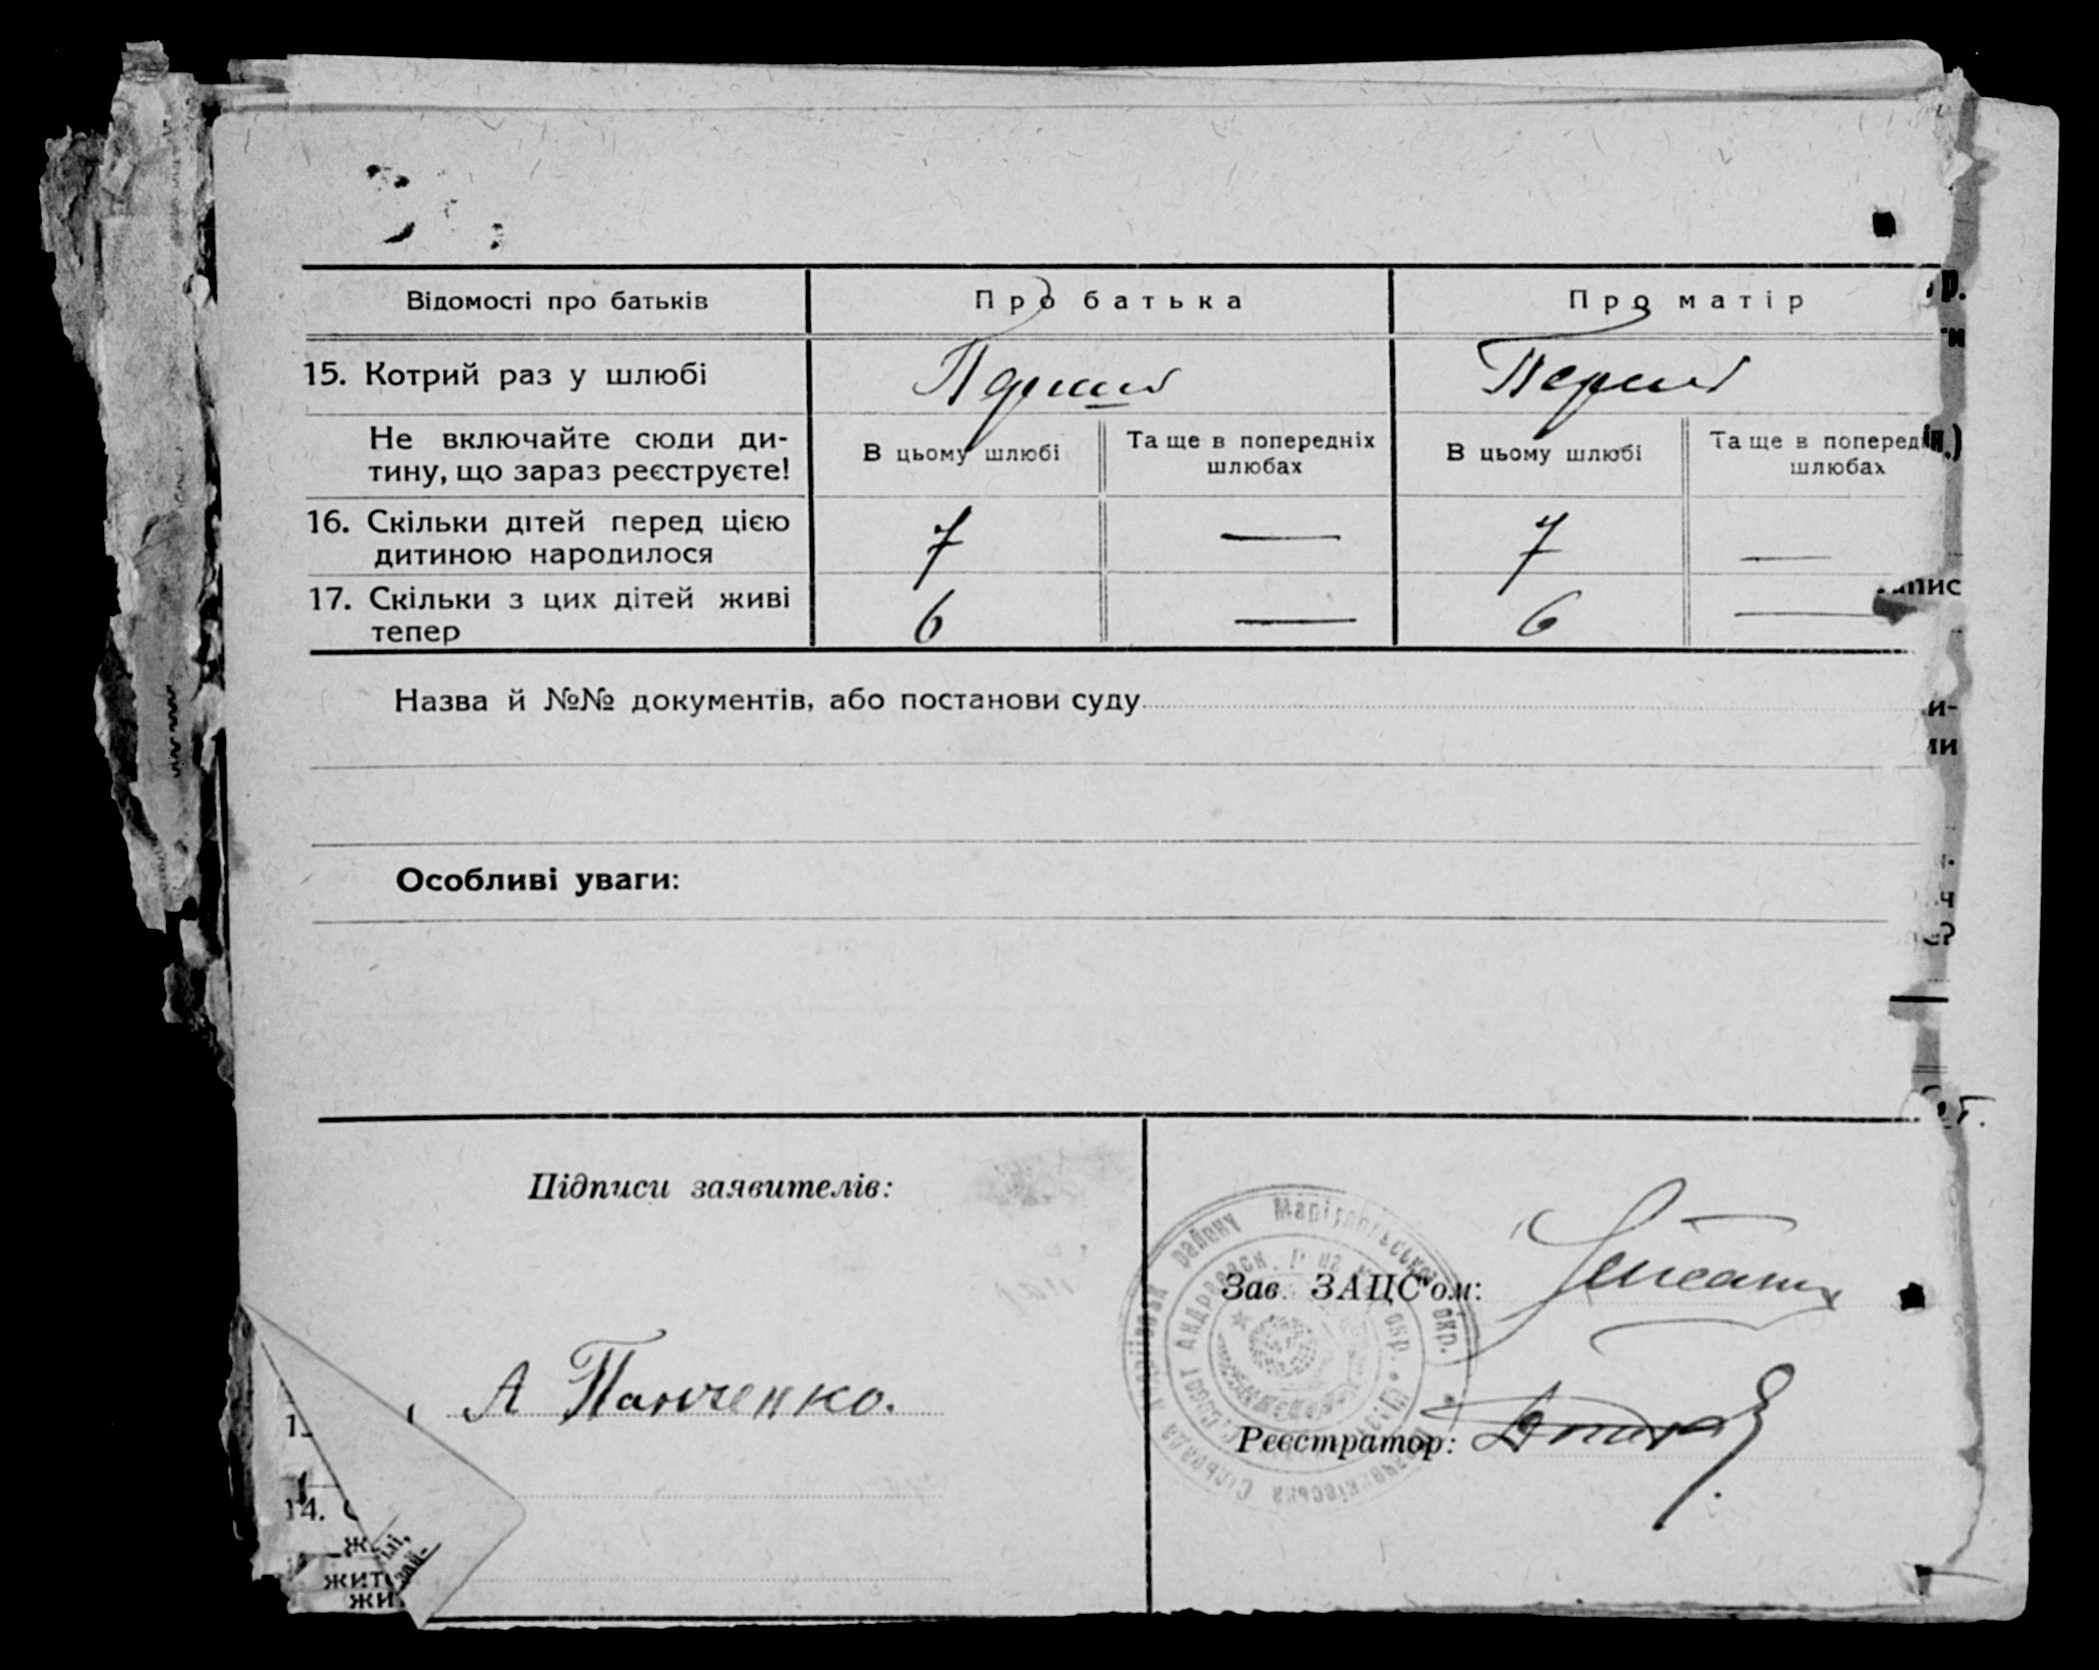 Відомості про батьків
Про батька
Про матір
15. Котрий раз у шлюбі
Перший
Перший
Не включайте сюди ди-
тину, що зараз реєструєте!
В цьому шлюбі
Та ще в попередніх
шлюбах
В цьому шлюбі
Та ще в поперед
шлюбах
16. Скільки дітей перед цією
дитиною народилося
7
—
7
—
17. Скільки з цих дітей живі
тепер
6
—
6
—
Назва й №№ документів, або постанови суду
Особливі уваги:
Підписи заявителів:
А Панченко.
Зав. ЗАЦС'ом:
Реєстратор:
району Маріупольської окр.
Сільрада
14.
жит
жи